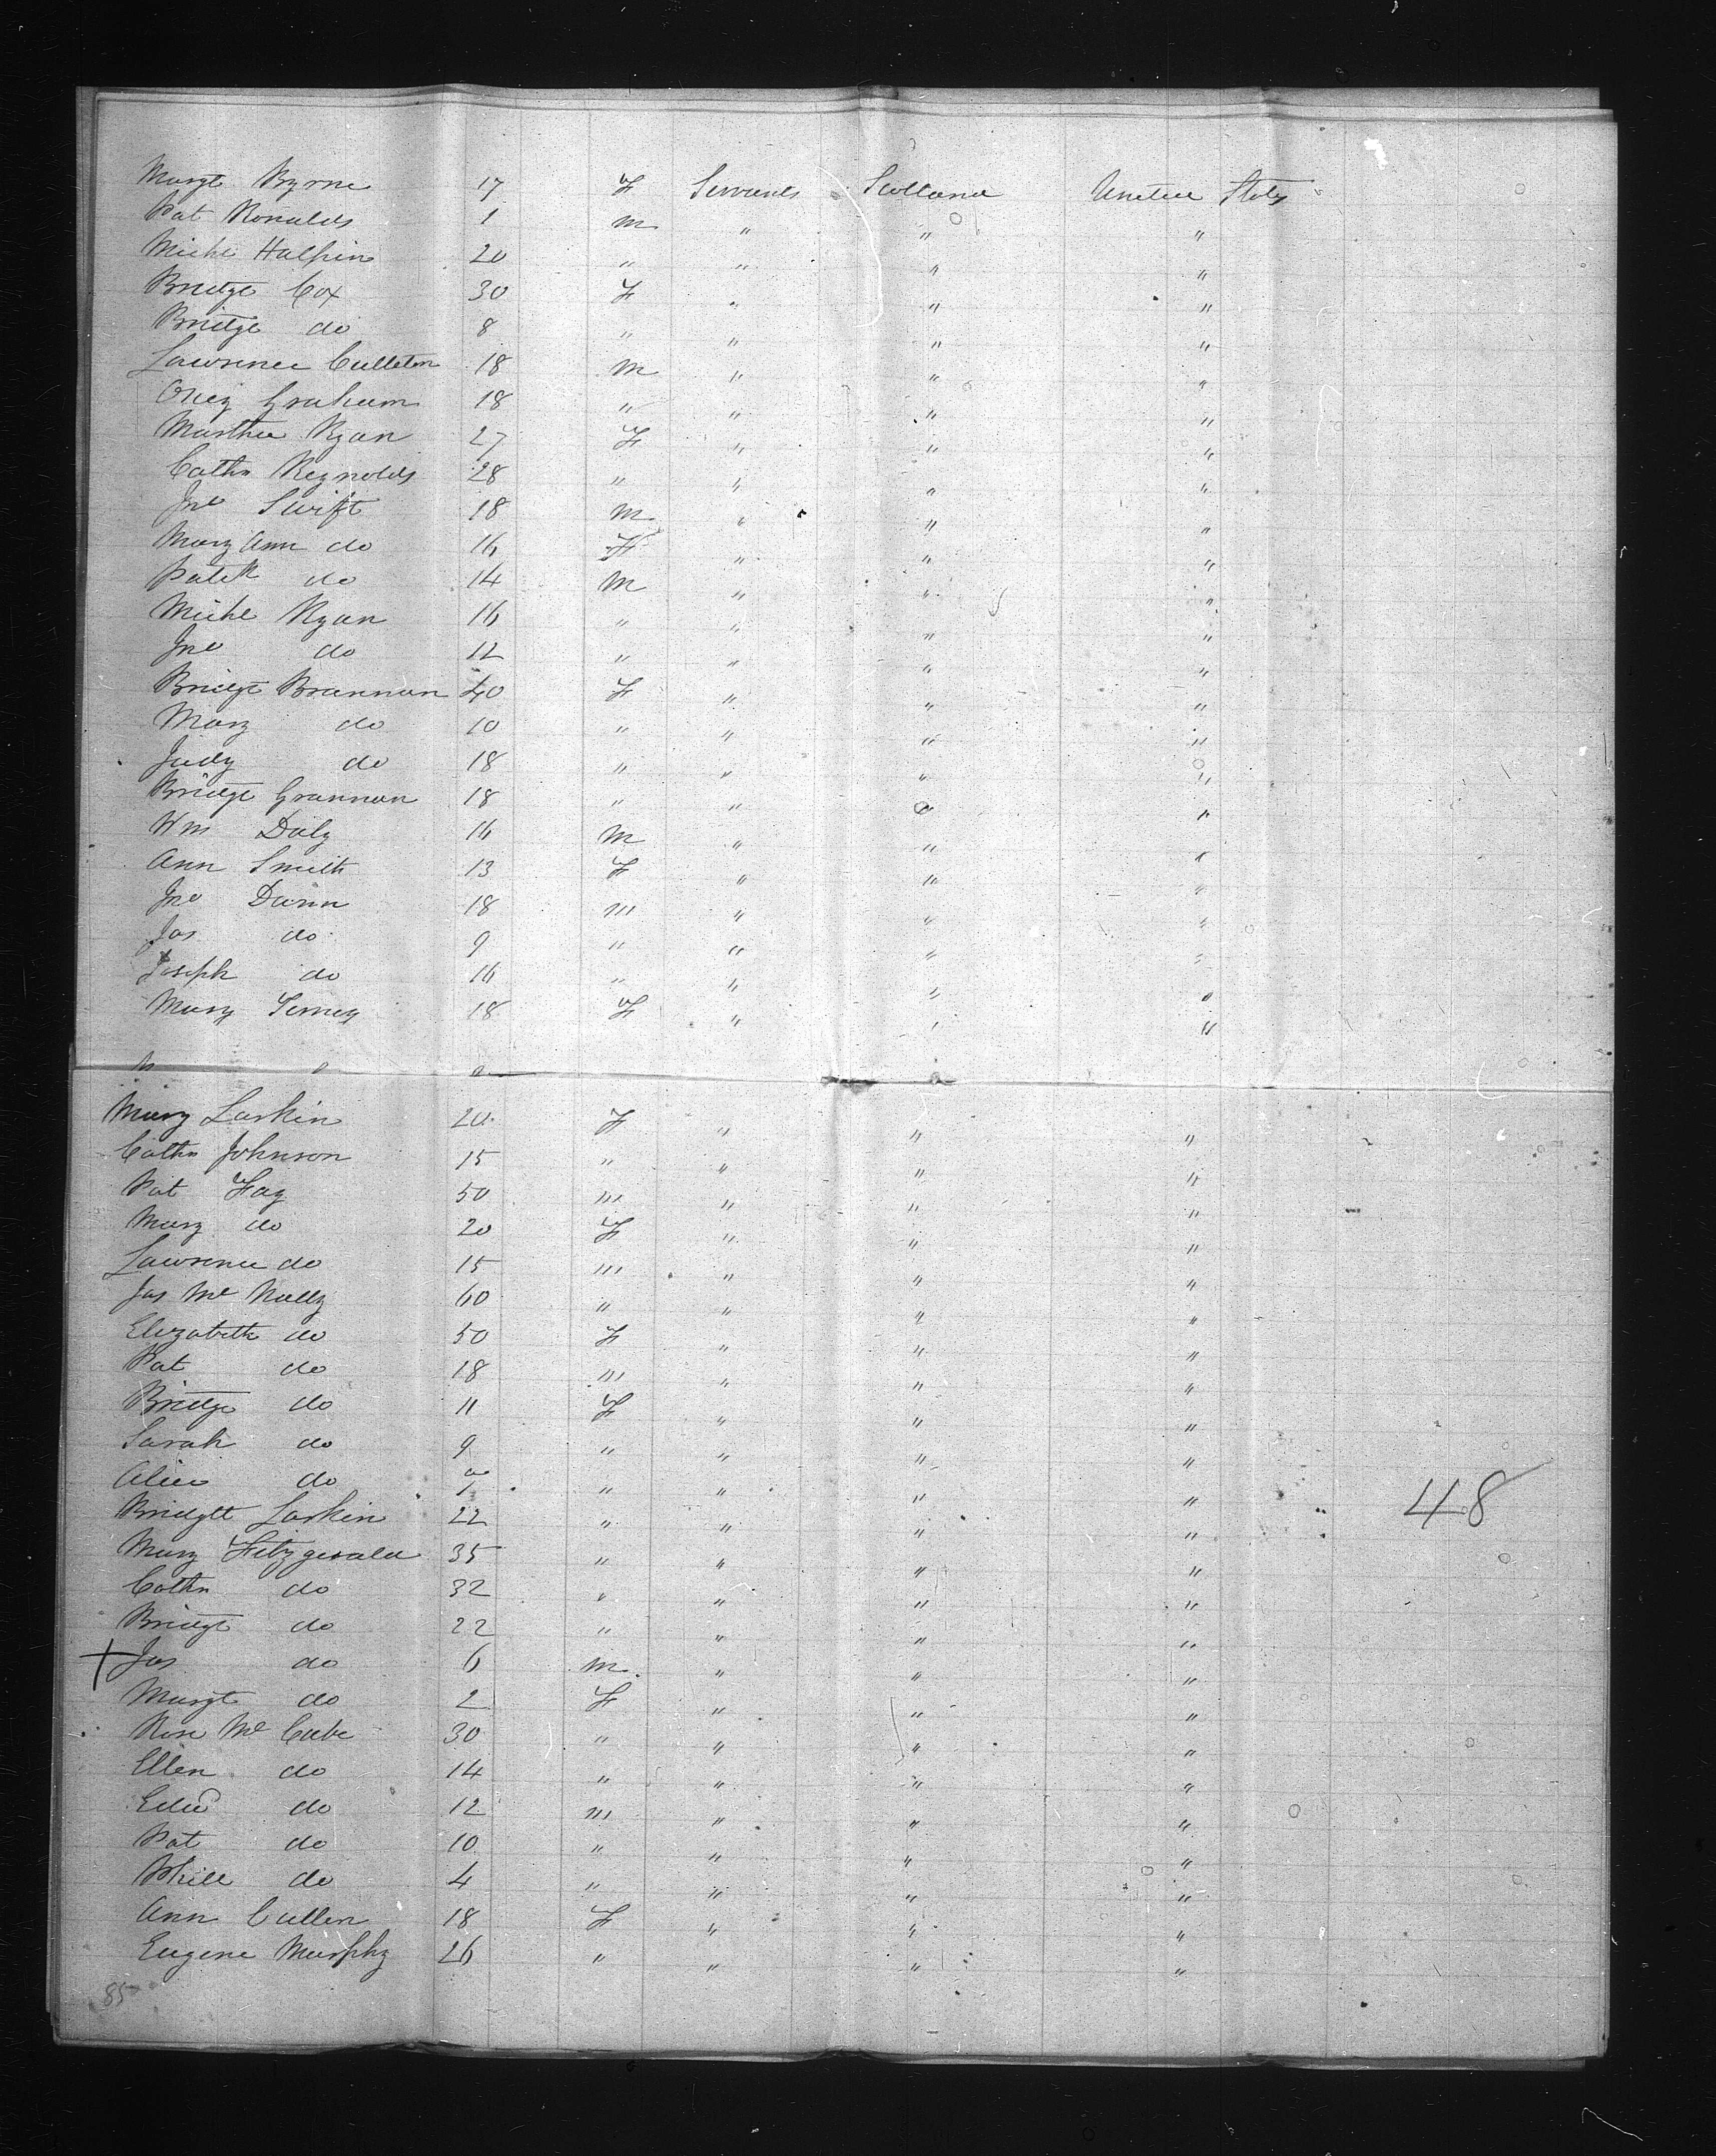 Margt Byrne 17 F Servants Scotland United States
Pat Ronalds 1 M " " "
Michl Halpin 20 " " " "
Bridgt Cox 30 F " " "
Bridgt do 8 " " " "
Lawrence Culleton 18 M " " "
Graham 18 " " " "
Martha Ryan 27 F " " "
Cathn Reynolds 28 " " " "
Jno Swift 18 M " " "
Mary Ann do 16 F " " "
Patk do 14 M " " "
Michl Ryan 16 " " " "
Jno do 12 " " " "
Bridgt Brannan 40 F " " "
Mary do 10 " " " "
Judy do 18 " " " "
Bridgt Grannan 18 " " " "
Wm Daly 16 M " " "
Ann Smith 13 F " " "
Jno Dunn 18 M " " "
Jas do 9 " " " "
Joseph do 16 " " " "
Mary 18 F " " "
Mary Larkin 20 F " " "
Cathn Johnson 15 " " " "
Pat Fay 50 M " " "
Mary do 20 F " " "
Lawrence do 15 M " " "
Jas Mc Nally 60 " " " "
Elizabeth do 50 F " " "
Pat do 18 M " " "
Bridgt do 11 F " " "
Sarah do 9 " " " "
Alice do " " " "
Bridgtt Larkin 22 " " " " 48
Mary Fitzgerald 35 " " " "
Cathn do 32 " " " "
Bridgt do 22 " " " "
+ Jas do 6 M " " "
Margt do 2 F " " "
Rose Mc Cabe 30 " " " "
Ellen do 14 " " " "
Edwd do 12 M " " "
Pat do 10 " " " "
Phill do 4 " " " "
Ann Cullen 18 F " " "
Eugene Murphy 26 " " " "
85